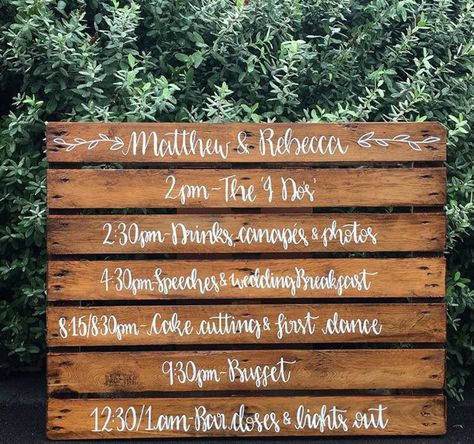 Matthew & Rebecca
2pm - The 'I Dos'
2:30pm - Drinks, canapés & photos
4:30pm - Speeches & wedding Breakfast
8:15/8:30pm - Cake cutting & first dance
9:30pm - Buffet
12:30/1am - Bar closes & lights out